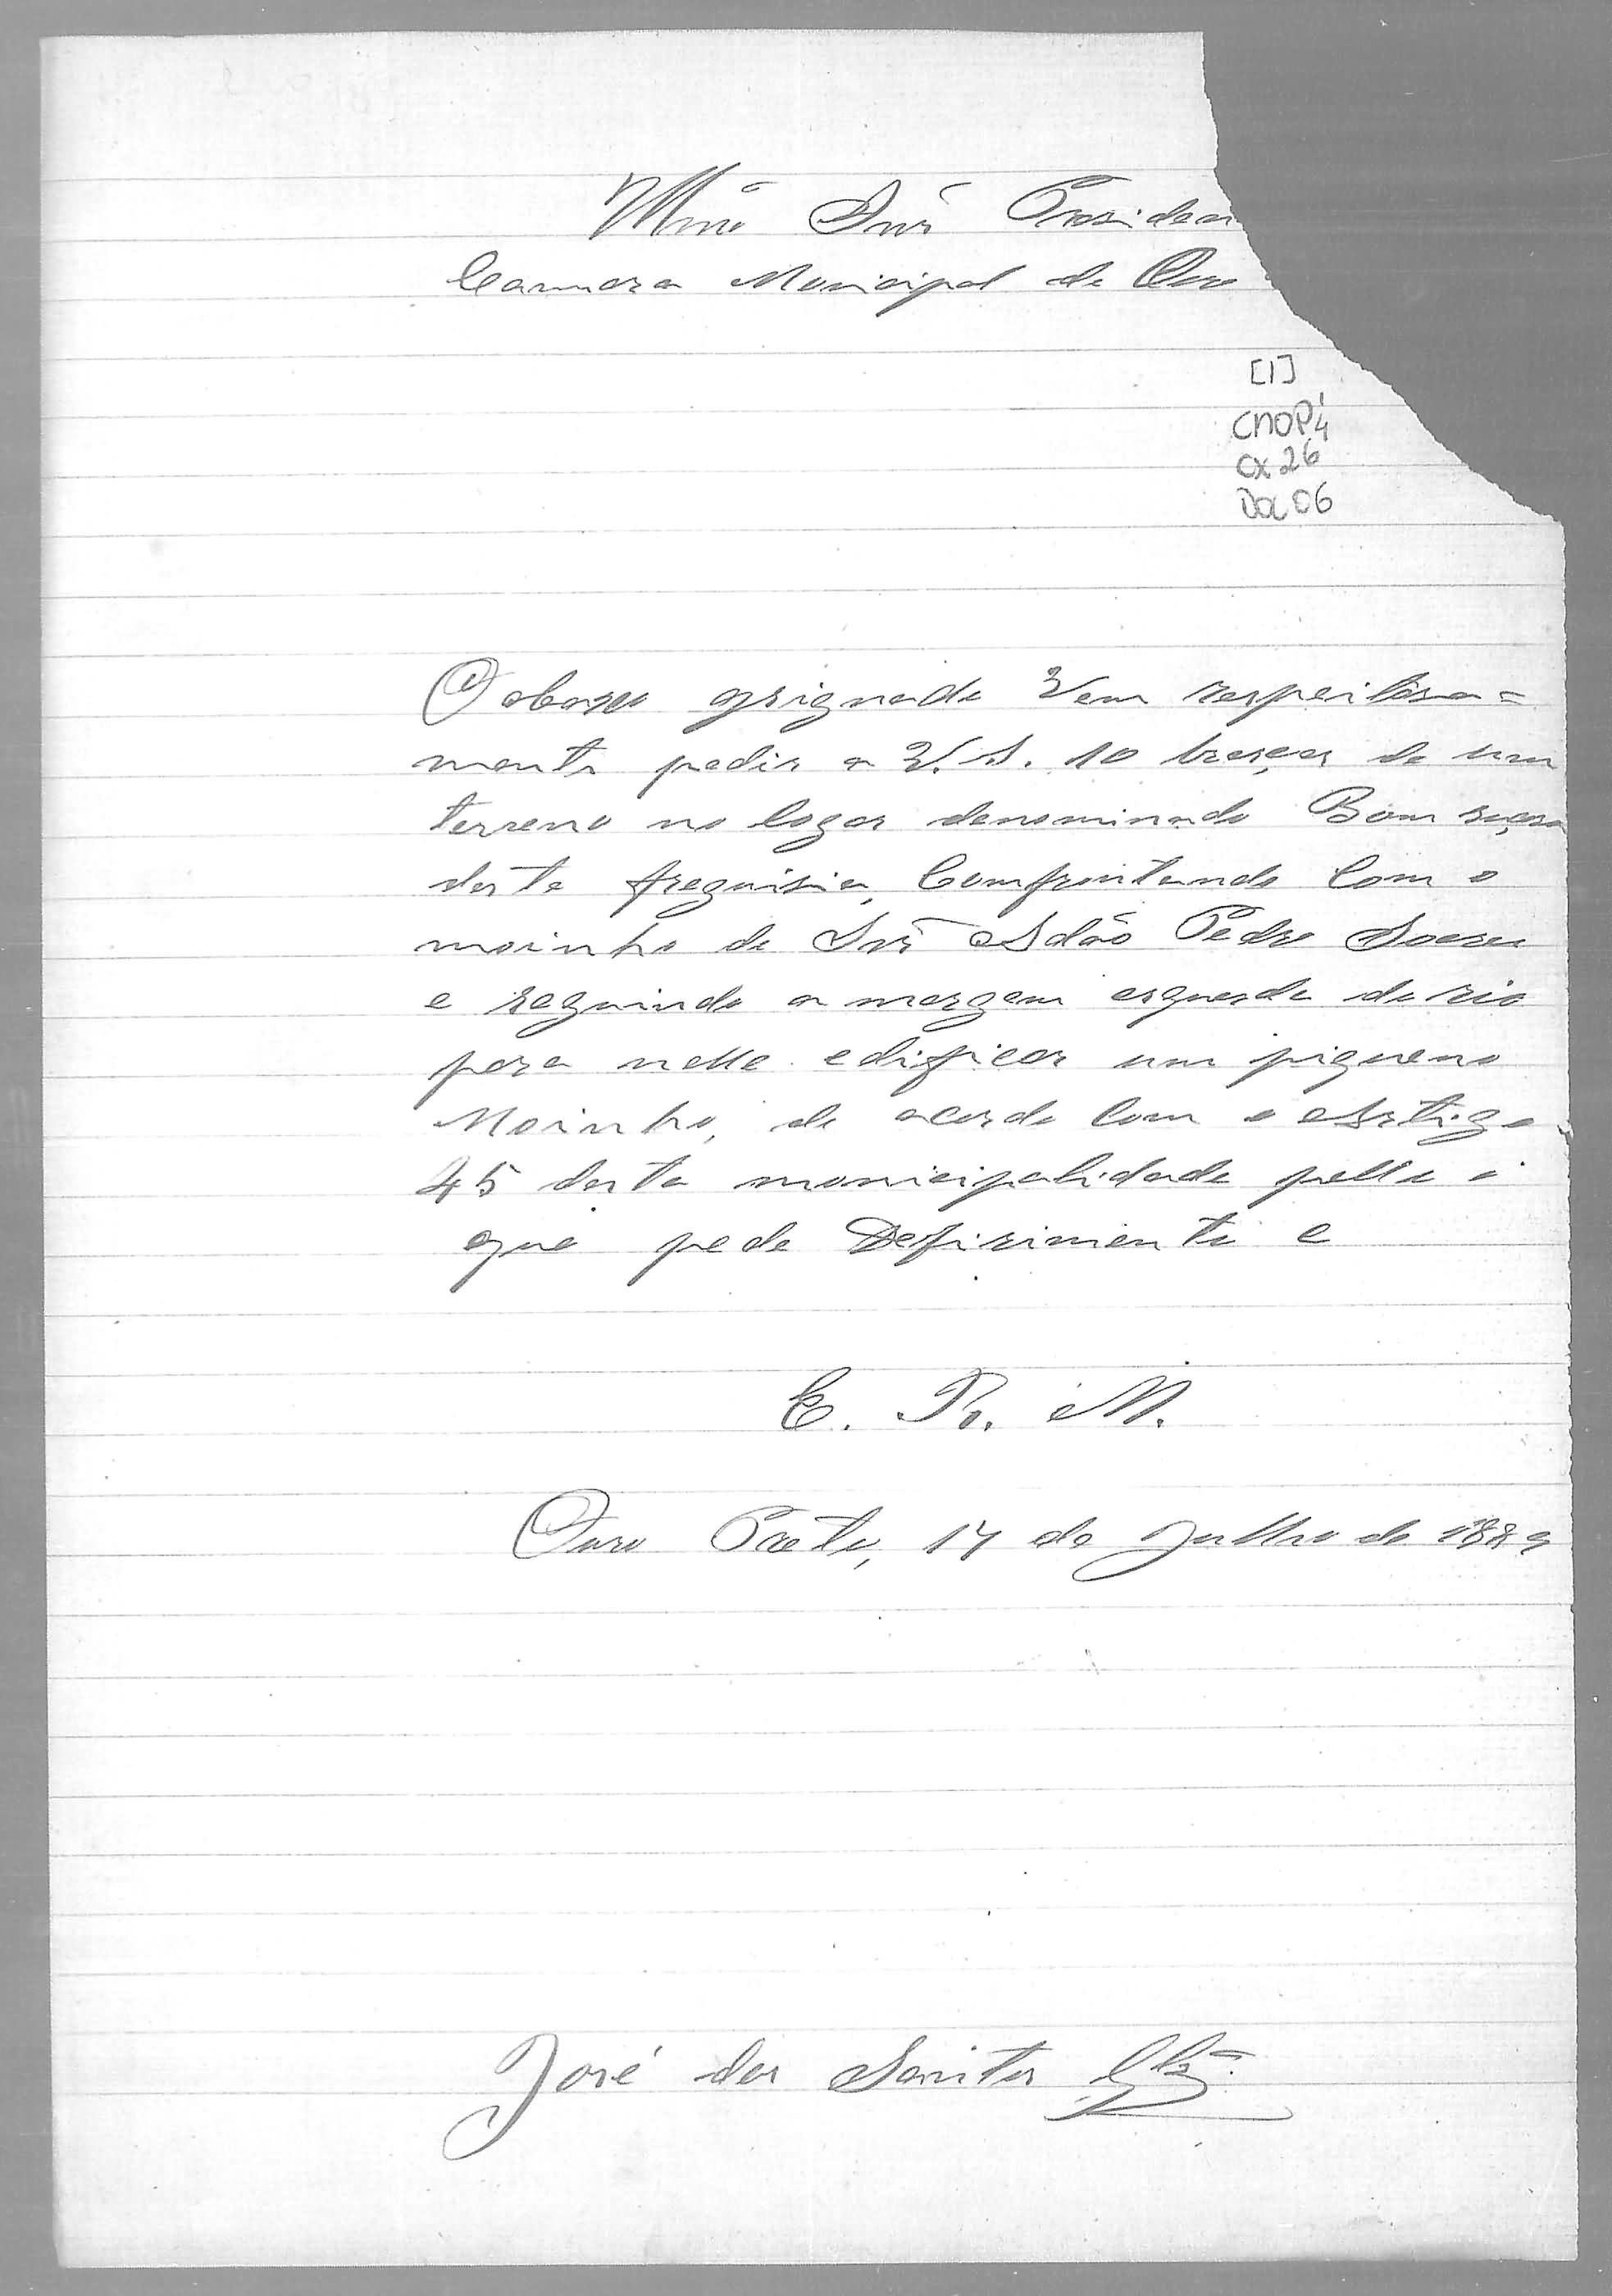 Illmo Snr Presiden
Cammara Municipal de Ouro
[1]
CMOP
Cx 26
Doc 06
O abaxo asignado vem respeitósa=
mente pedir a V. S. 10 braças de um
terreno no logar denominado Bom
desta freguisia, Comfrontando Com o
moinho de Snr Adão Pedro Soares
e seguindo a margem esquerda do rio
para nelle edificar um piqueno
Moinho, de acordo Com o Artigo
45 desta municipalidade pello
que pede Defirimento e
E. R. M.
Ouro Preto, 17 de Julho de 1889
José dos Santos